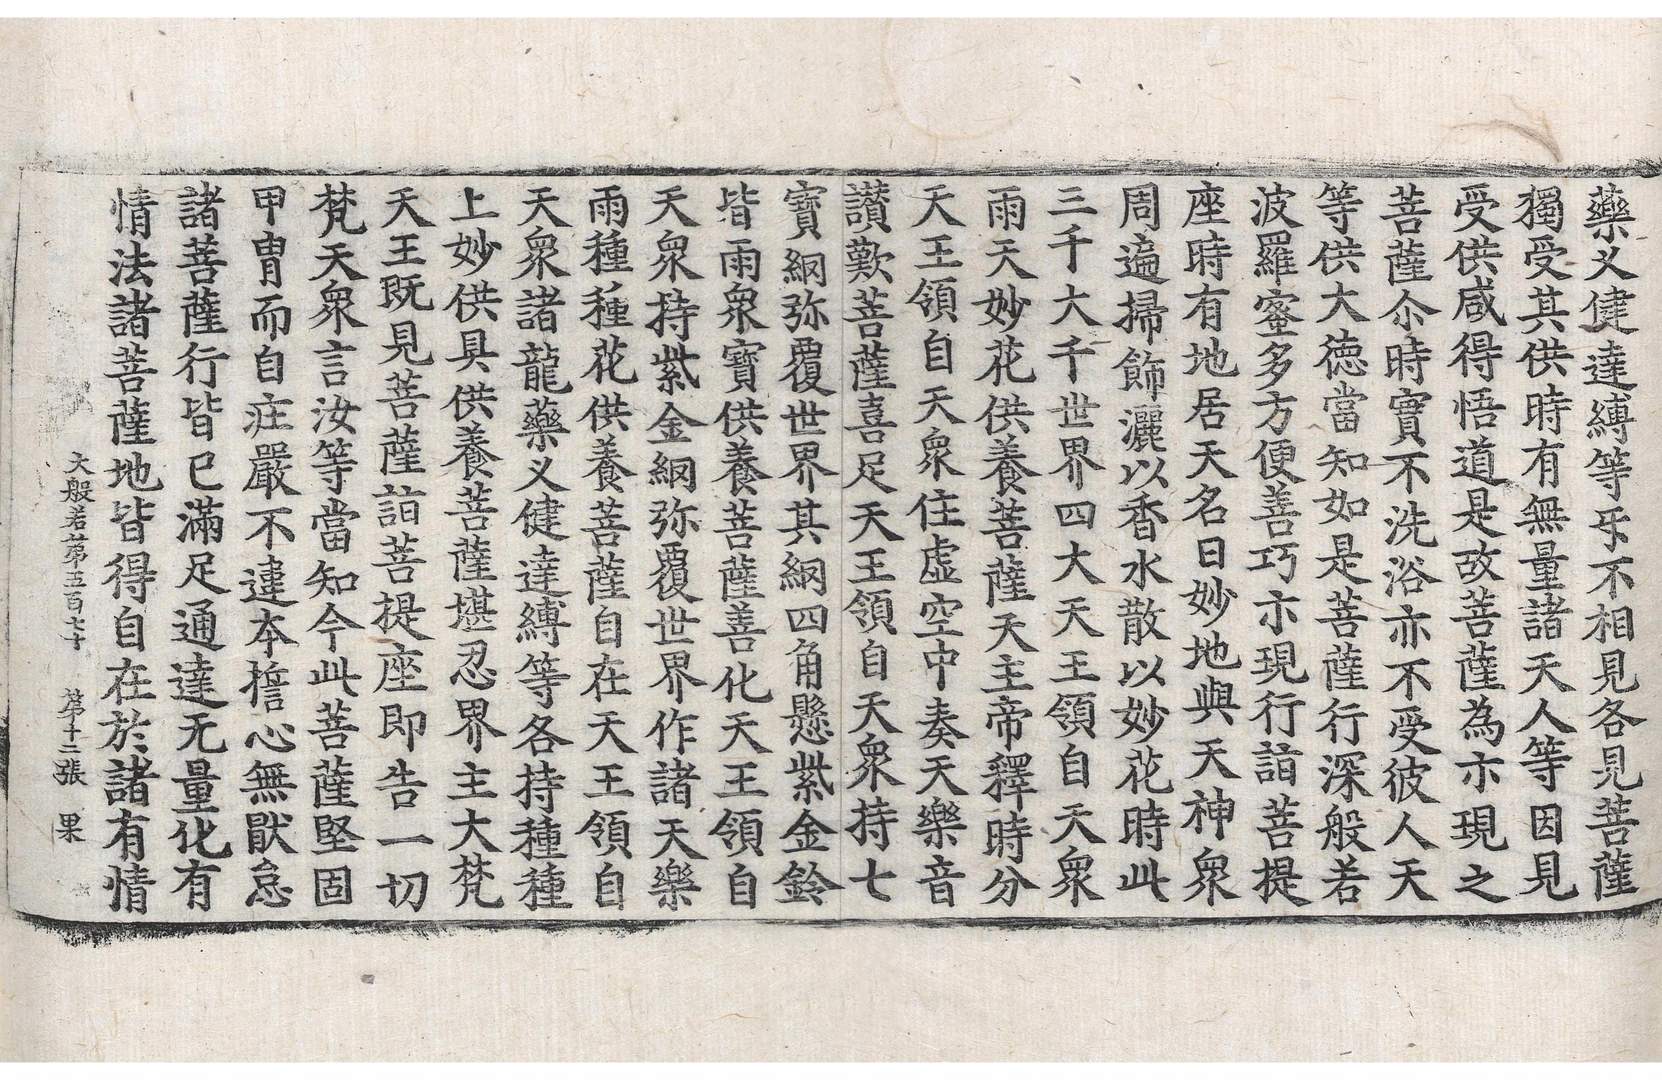 藥叉健達縛等乎不相見各見菩薩
獨受其供時有無量諸天人等因見
受供咸得悟道是故菩薩為亦現之
菩薩尒時實不洗浴亦不受彼人天
等供大德當知如是菩薩行深般若
波羅蜜多方便善巧亦現行詣菩提
座時有地居天名曰妙地與天神衆
周遍掃飾灑以香水散以妙花時此
三千大千世界四大天王領自天衆
雨天妙花供養菩薩天主帝釋時分
天王領自天衆住虛空中奏天樂音
讚歎菩薩喜足天王領自天衆持七
寶網弥覆世界其網四角懸紫金鈴
皆雨衆寶供養菩薩善化天王領自
天衆持紫金網弥覆世界作諸天樂
雨種種花供養菩薩自在天王領自
天衆諸龍藥叉健達縛等各持種種
上妙供具供養菩薩堪忍界主大梵
天王既見菩薩詣菩提座即告一切
梵天衆言汝等當知今此菩薩堅固
甲冑而自庄嚴不違本誓心無猒怠
諸菩薩行皆已滿足通達无量化有
情法諸菩薩地皆得自在於諸有情
大般若第五百七十 第十二張 果